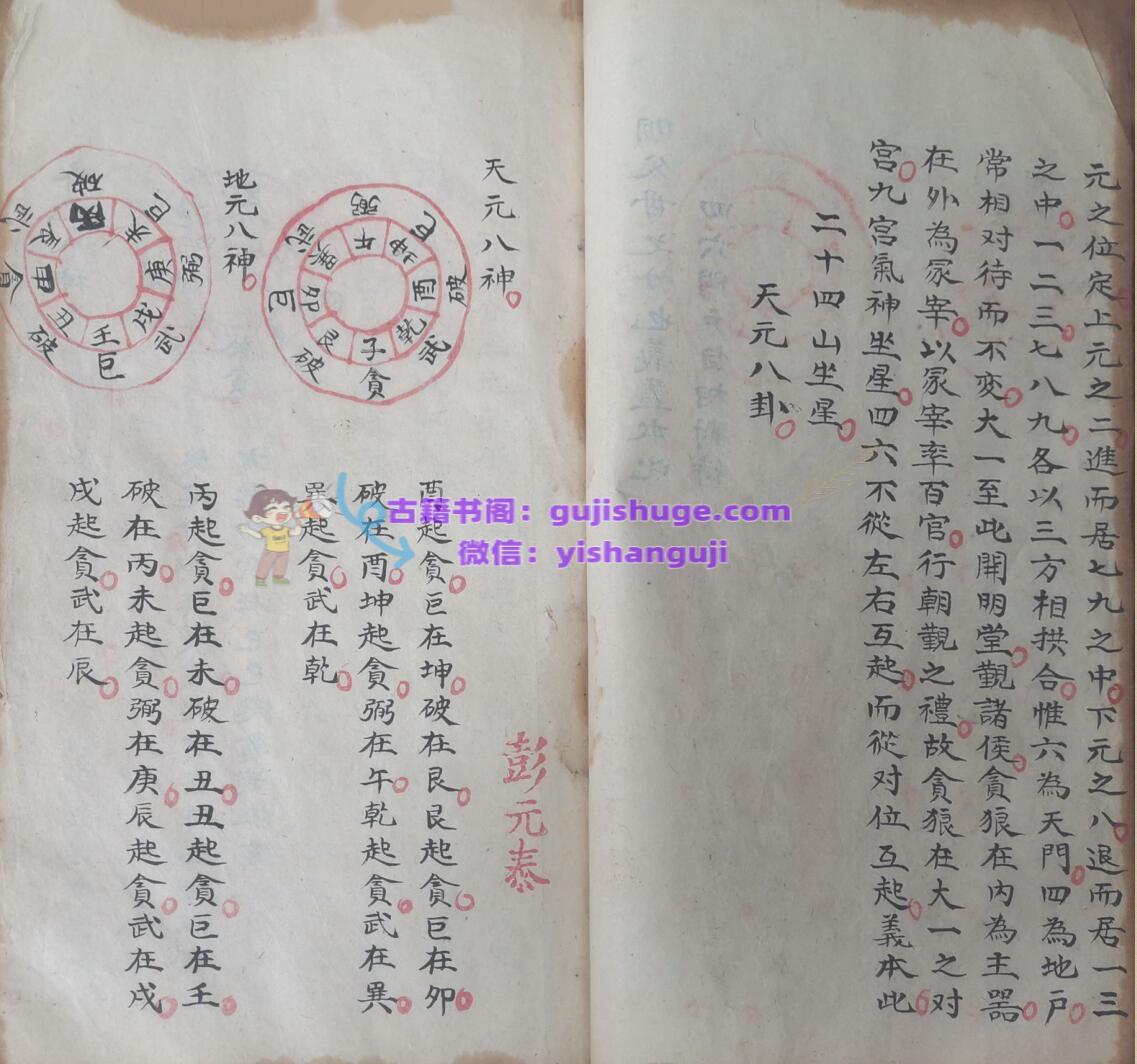 元之位定上元之二進而居七九之中下元之八退而居一三
之中一二三七八九各以三方相拱合惟六為天門四為地户
常相对待而不变大一至此開明堂觀諸侯貪狼在內為主器
在外為冢宰以冢宰率百官行朝觀之禮故貪狼在大一之对
宮九宮氣神坐星四六不從左右互起而從对位互起義本此
二十四山坐星
天元八卦
天元八神
子
貪
艮
破
卯
巨
巽
武
午
弼
坤
巳
酉
破
乾
武
彭元泰
酉起貪巨在坤破在艮艮起貪巨在卯
破在酉坤起貪弼在午乾起貪武在巽
巽起貪武在乾
地元八神
壬
巨
丑
破
甲
貪
辰
武
丙
破
未
巳
庚
弼
戌
武
丙起貪巨在未破在丑丑起貪巨在壬
破在丙未起貪弼在庚辰起貪武在戌
戌起貪武在辰
古籍书阁：gujishuge.com
微信：yishanguji